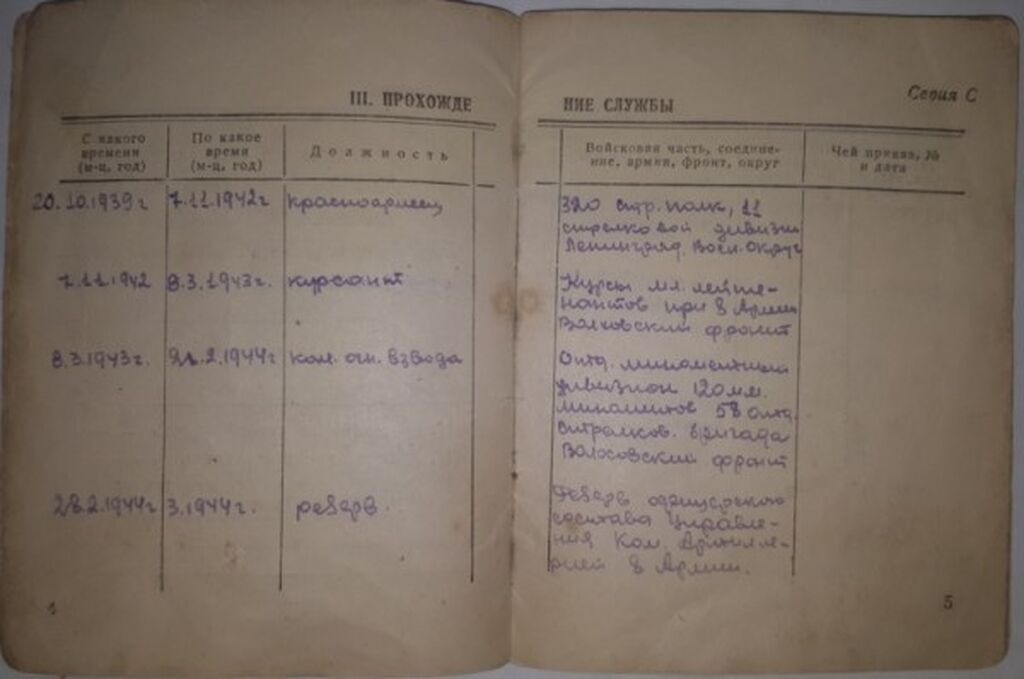 III. ПРОХОЖДЕ
НИЕ СЛУЖБЫ
Серия С
С какого
времени
(м-ц, год)
По какое
время
(м-ц, год)
Должность
Войсковая часть, соедине-
ние, армия, фронт, округ
Чей приказ, №
и дата
20.10.1939г
7.11.1942г
красноармеец
320 стр. полк, 11
стрелковой дивизии
Ленинград. Воен. Округ
7.11.1942
8.3.1943г.
курсант
Курсы мл. лейте-
нантов при 8 Армии
Волховский фронт
8.3.1943г.
2.1944г
ком. огн. взвода
Отд. минометный
дивизион 120мм.
минометов 58 отд.
стрелков. бригада
Волховский фронт
28.2.1944г
3.1944г.
резерв.
Резерв офицерского
состава Управле-
ния Ком. Артилле-
рией 8 Армии.
4
5